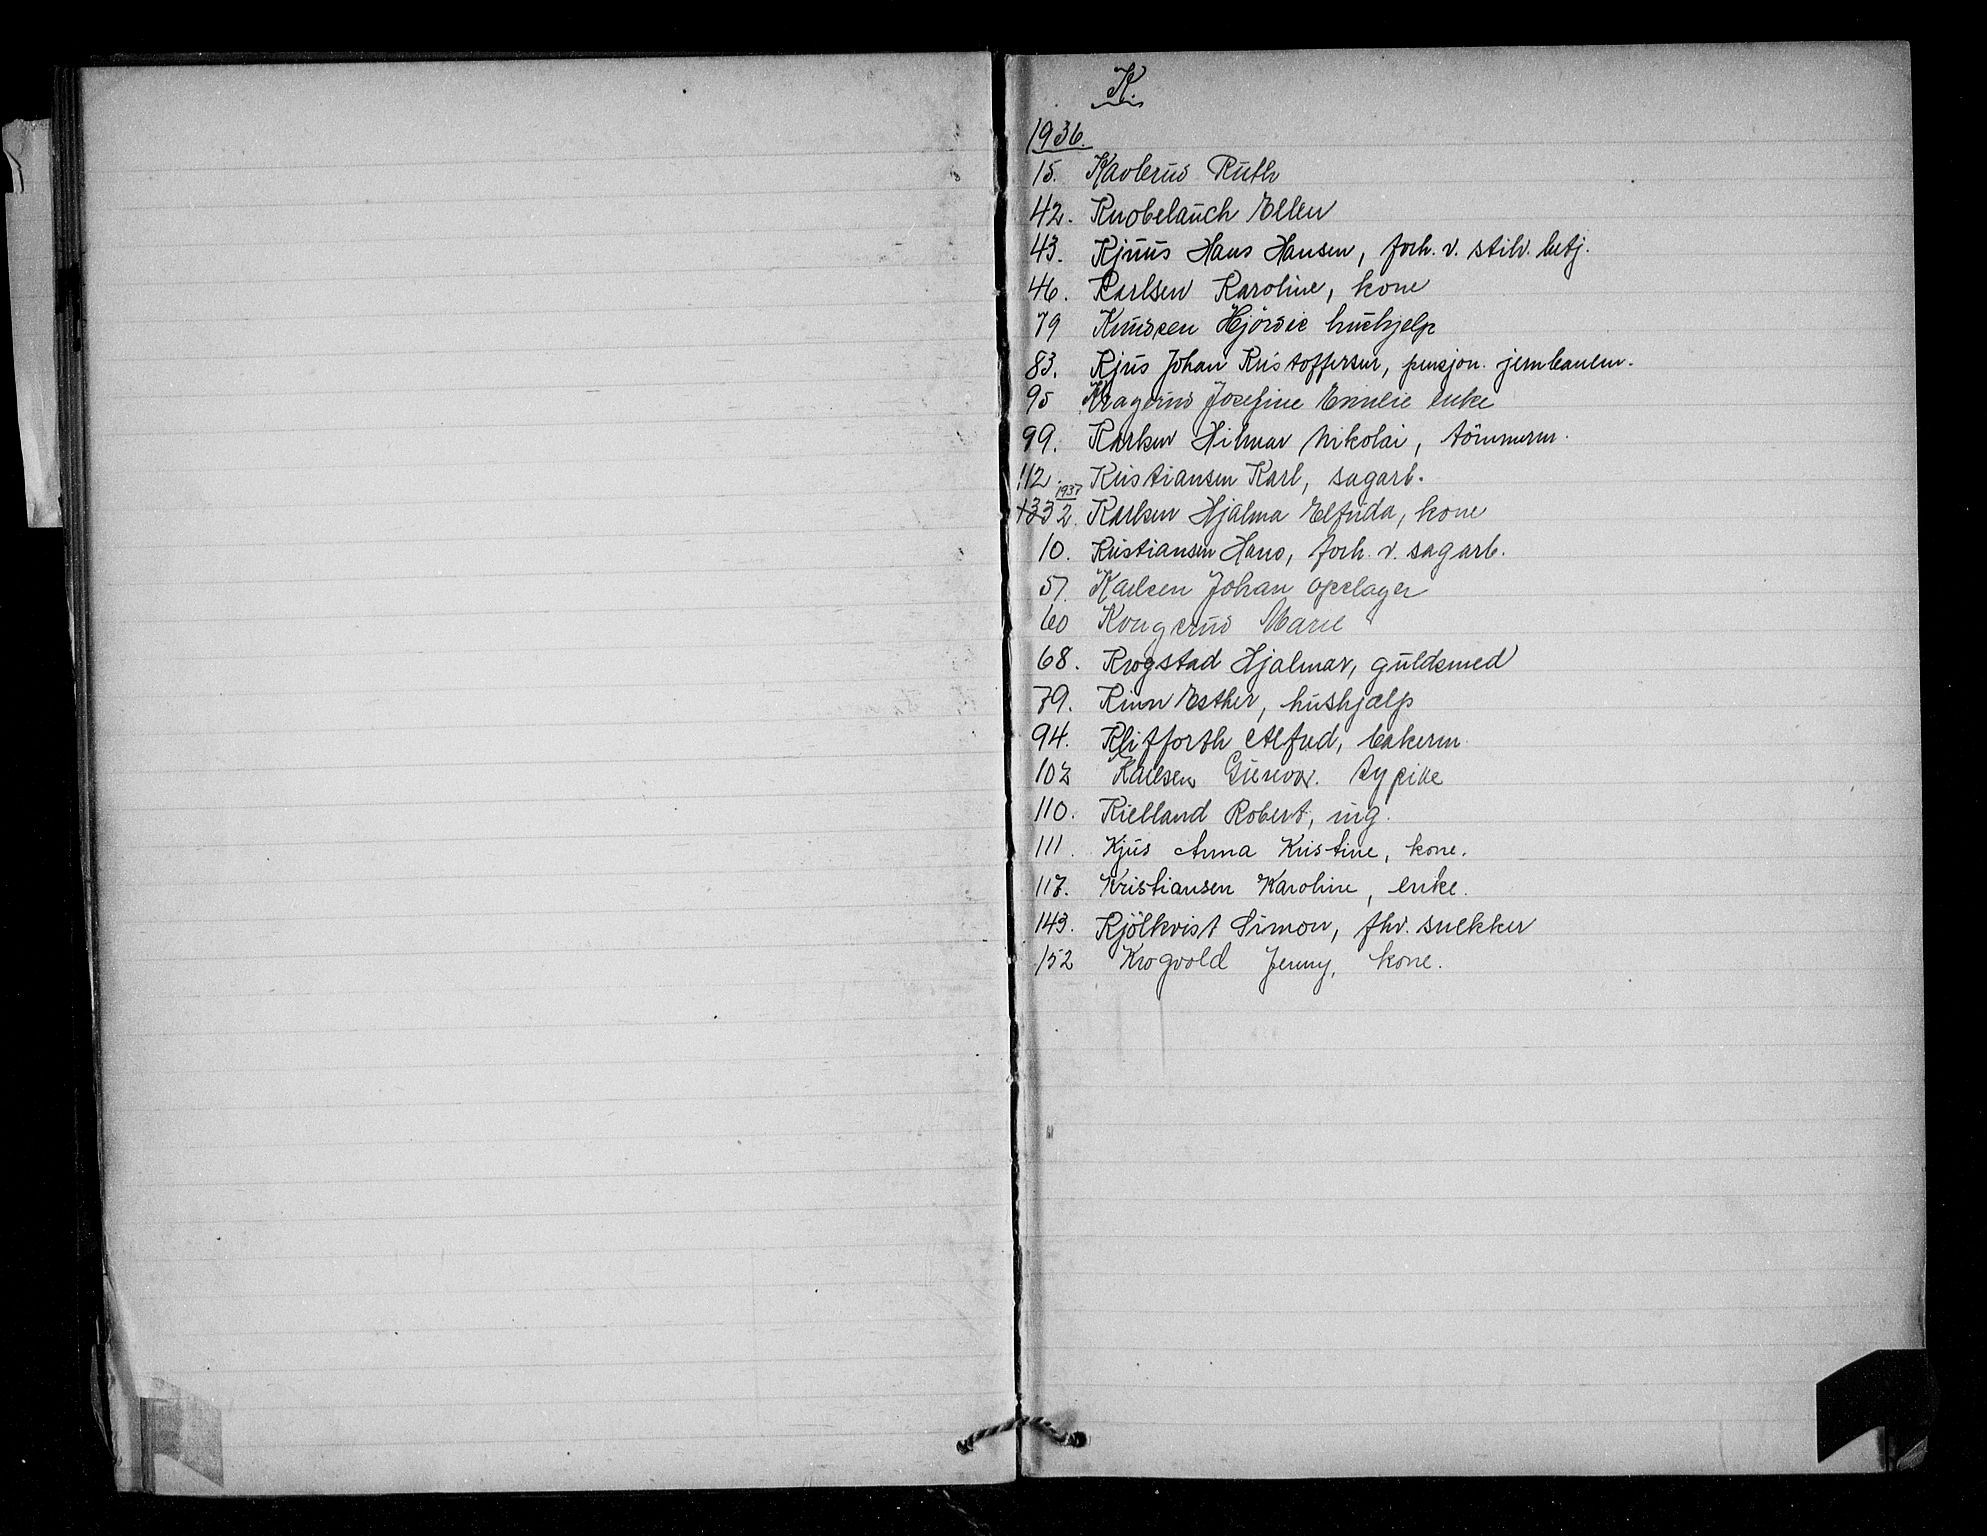 K.
1936.
15. Kavlerud Ruth
42. Knobelauch Ellen
43. Kjuus Hans Hansen, forh. v. stilv. betj.
46. Karlsen Karoline, kone
79 Knudsen Hjördis hushjelp
83. Kjus Johan Kristoffersen, pensjon. jernbanem.
95 Kragerud Josefine Emilie enke
99. Karlsen Hilmar Nikolai, tömmerm.
112. Kristiansen Karl, sagarb.
1937
2. Karlsen Hjalma Elfrida, kone
10. Kristiansen Hans, forh. v. sagarb.
57. Karlsen Johan opslager
60 Kongerud Marie
68. Krogstad Hjalmar, guldsmed
79. Kinn Esther, hushjælp
94. Klitforth Alfred, bakerm.
102 Karlsen Gunvor. sypike
110. Kielland Robert, ing.
111. Kjus Anna Kristine, kone.
117. Kristiansen Karoline, enke.
143. Kjölkvist Simon, fhv. snekker
152 Krogvold Jenny, kone.